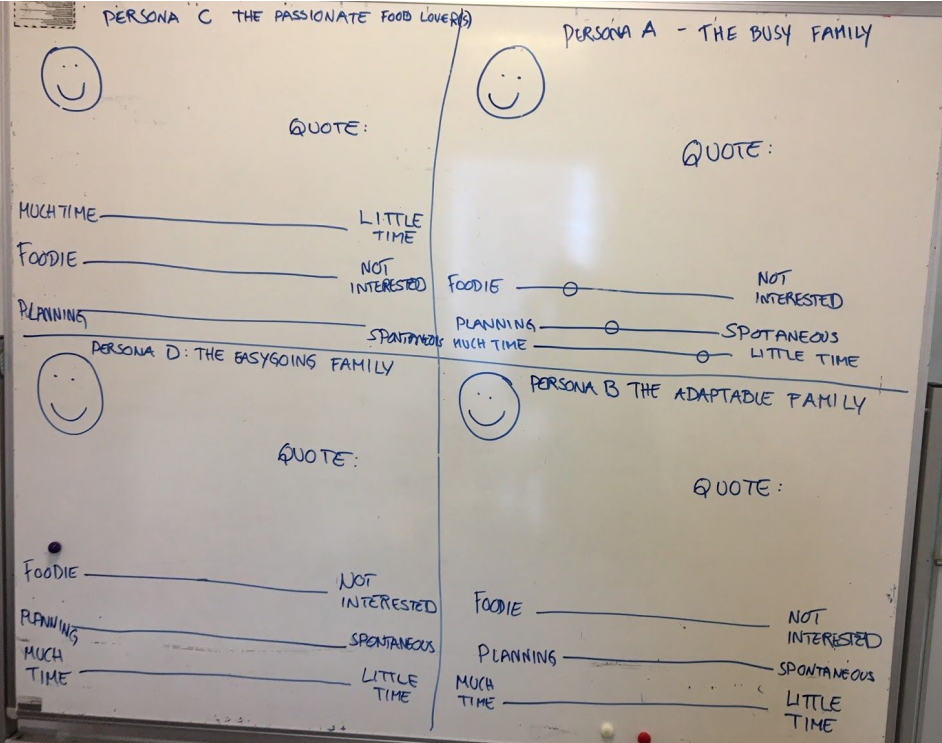 PERSONA C THE PASSIONATE FOOD LOVER(S)
QUOTE:
MUCH TIME
LITTLE
TIME
FOODIE
NOT
INTERESTED
PLANNING
SPONTANEOUS
PERSONA A - THE BUSY FAMILY
QUOTE:
FOODIE
NOT
INTERESTED
PLANNING
SPOTANEOUS
MUCH TIME
LITTLE TIME
PERSONA D: THE EASYGOING FAMILY
QUOTE:
FOODIE
NOT
INTERESTED
PLANNING
SPONTANEOUS
MUCH
TIME
LITTLE
TIME
PERSONA B THE ADAPTABLE FAMILY
QUOTE:
FOODIE
NOT
INTERESTED
PLANNING
SPONTANEOUS
MUCH
TIME
LITTLE
TIME